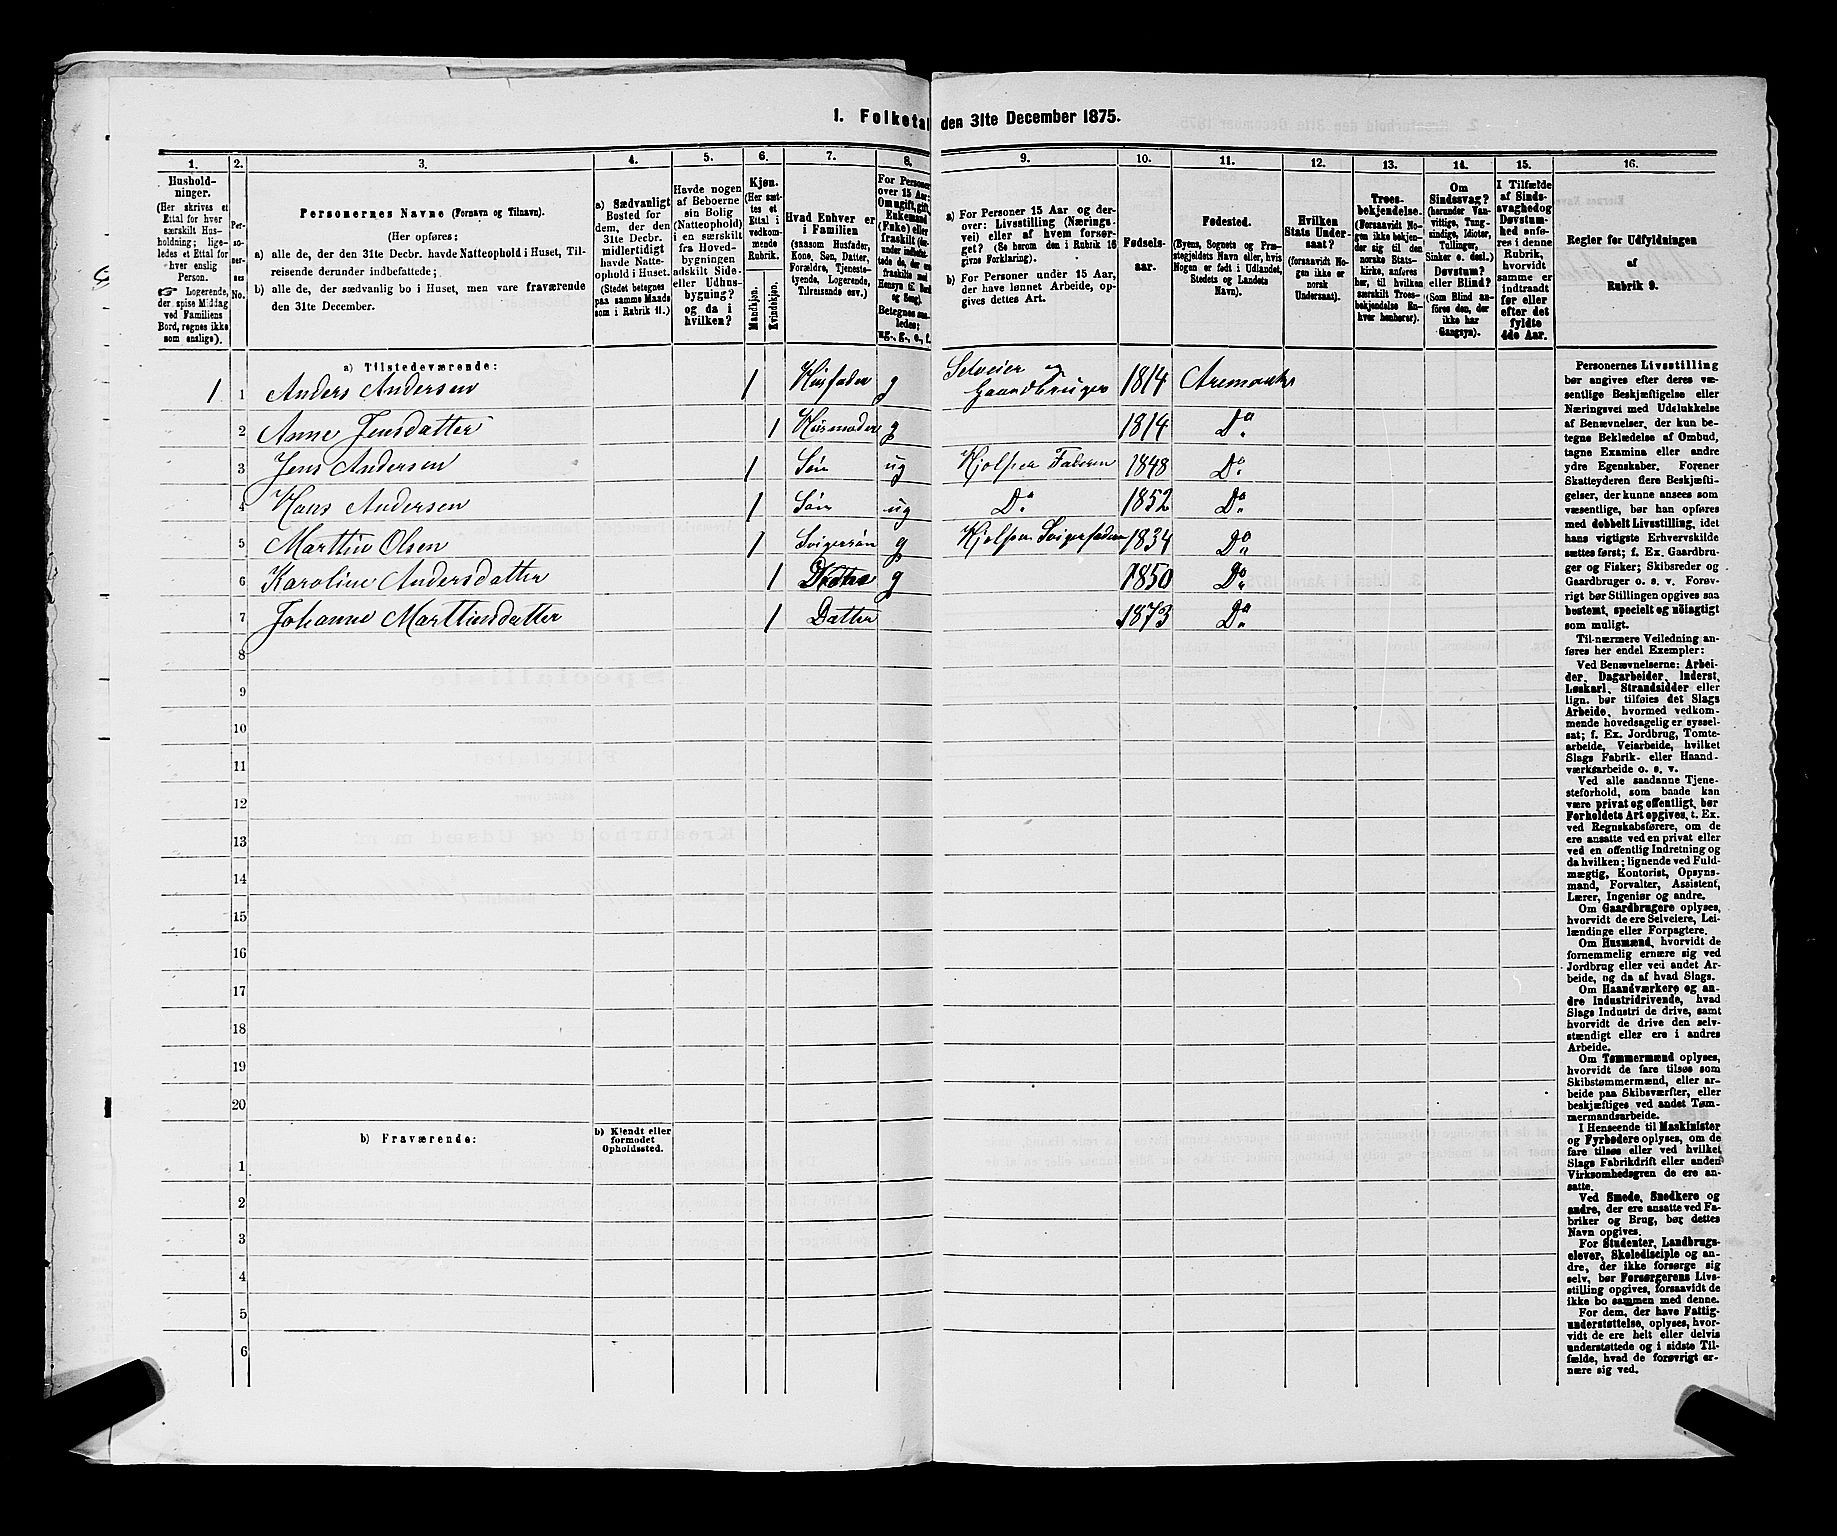 1. Folketal den 31te December 1875.
1. 2. 3. 4. 5. 6. 7. 8. 9. 10. 11. 12. 13. 14. 15. 16.
Hushold-
ninger.
(Her skrives et
Ettal for hver
særskilt Hus-
holdning; lige-
ledes et Ettal for
hver enslig
Person.
☞ Logerende,
der spise Middag
ved Familiens
Bord, regnes ikke
som enslige).
Per-
so-
ner-
nes
No.
Personernes Navne (Fornavn og Tilnavn).
(Her opføres:
a) alle de, der den 31te Decbr. havde Natteophold i Huset, Til-
reisende derunder indbefattede;
b) alle de, der sædvanlig bo i Huset, men vare fraværende
den 31te December.
a) Sædvanligt
Bosted for
dem, der den
31te Decbr.
midlertidigt
havde Natte-
ophold i Huset.
(Stedet betegnes
paa samme Maade
som i Rubrik 11.)
Havde nogen
af Beboerne
sin Bolig
(Natteophold)
i en særskilt
fra Hoved-
bygningen
adskilt Side-
eller Udhus-
bygning?
og da i
hvilken?
Kjøn.
(Her sæt-
tes et
Ettal i
vedkom-
mende
Rubrik.
Mandkjøn.
Kvindkjøn.
Hvad Enhver er
i Familien
(saasom Husfader,
Kone, Søn, Datter,
Forældre, Tjeneste-
tyende, Logerende,
Tilreisende osv.)
For Personer
over 15 Aar:
Om ugift, gift,
Enkemand
(Enke) eller
fraskilt
Betegnes saa-
ledes:
ug., g., e., f.
a) For Personer 15 Aar og der-
over: Livsstilling (Nærings-
vei) eller af hvem forsør-
get? (Se herom den i Rubrik 16
givne Forklaring).
b) For Personer under 15 Aar,
der have lønnet Arbeide, op-
gives dettes Art.
Fødsels-
aar.
Fødested.
(Byens, Sognets og Præ-
stegjeldets Navn eller, hvis
Nogen er født i Udlandet,
Stedets og Landets
Navn).
Hvilken
Stats Under-
saat?
(forsaavidt No-
gen ikke er
norsk
Undersaat).
Troes-
bekjendelse.
(Forsaavidt No-
gen ikke bekjen-
der sig til den
norske Stats-
kirke, anføres
her, til hvilken
særskilt Troes-
bekjendelse En-
hver henhører).
Om
Sindssvag?
(herunder Van-
vittige, Tung-
sindige, Idioter,
Tullinger,
Sinker o. desl.)
Døvstum?
eller Blind?
(Som Blind an-
føres den, der
ikke har
Gangsyn).
I Tilfælde
af Sinds-
svaghed og
Døvstum-
hed anfø-
res i denne
Rubrik,
hvorvidt
samme er
indtraadt
før eller
efter det
fyldte
4de Aar.
Regler for Udfyldningen
af
Rubrik 9.
a) Tilstedeværende:
1 1 Anders Andersen 1 Husfader g Selveier og Gaardbruger 1814 Aremark
2 Anne Jensdatter 1 Husmoder g 1814 Do
3 Jens Andersen 1 Søn ug Hjelper Faderen 1848 Do
4 Hans Andersen 1 Søn ug Do 1852 Do
5 Marttin Olsen 1 Svigersøn g Hjelper Svigerfaderen 1834 Do
6 Karoline Andersdatter 1 Datter g 1850 Do
7 Johanne Marttinsdatter 1 Datter 1873 Do
8
9
10
11
12
13
14
15
16
17
18
19
20
b) Fraværende:
b) Kjendt eller
formodet
Opholdssted.
1
2
3
4
5
6
Personernes Livsstilling
bør angives efter deres væ-
sentlige Beskjæftigelse eller
Næringsvei med Udelukkelse
af Benævnelser, der kun be-
tegne Beklædelse af Ombud,
tagne Examina eller andre
ydre Egenskaber. Forener
Skatteyderen flere Beskjæfti-
gelser, der kunne ansees som
væsentlige, bør han opføres
med dobbelt Livsstilling, idet
hans vigtigste Erhvervskilde
sættes først; f. Ex. Gaardbru-
ger og Fisker; Skibsreder og
Gaardbruger o. s. v. Forøv-
rigt bør Stillingen opgives saa
bestemt, specielt og nöiagtigt
som muligt.
Til nærmere Veiledning an-
føres her endel Exempler:
Ved Benævnelserne: Arbei-
der, Dagarbeider, Inderst,
Løskarl, Strandsidder eller
lign. bør tilføies det Slags
Arbeide, hvormed vedkom-
mende hovedsagelig er syssel-
sat; f. Ex. Jordbrug, Tomte-
arbeide, Veiarbeide, hvilket
Slags Fabrik- eller Haand-
værksarbeide o. s. v.
Ved alle saadanne Tjene-
steforhold, som baade kan
være privat og offentligt, bør
Forholdets Art opgives, t. Ex.
ved Regnskabsførere, om de
ere ansatte ved en privat eller
ved en offentlig Indretning og
da hvilken; lignende ved Fuld-
mægtig, Kontorist, Opsyns-
mand, Forvalter, Assistent,
Lærer, Ingeniør og andre.
Om Gaardbrugere oplyses,
hvorvidt de ere Selveiere, Lei-
lændinge eller Forpagtere.
Om Husmænd, hvorvidt de
fornemmelig ernære sig ved
Jordbrug eller ved andet Ar-
beide, og da af hvad Slags.
Om Haandværkere og an-
dre Industridrivende, hvad
Slags Industri de drive, samt
hvorvidt de drive den selv-
stændigt eller ere i andres
Arbeide.
Om Tømmermænd oplyses,
hvorvidt de fare tilsøs som
Skibstømmermænd, eller ar-
beide paa Skibsværfter, eller
beskjæftiges ved andet Tøm-
mermandsarbeide.
I Henseende til Maskinister
og Fyrbødere oplyses, om de
fare tilsøs eller ved hvilket
Slags Fabrikdrift eller anden
Virksomhedsgren de ere an-
satte.
Ved Smede, Snedkere og
andre, der ere ansatte ved Fa-
briker og Brug, bør dettes
Navn opgives.
For Studenter, Landbrugs-
elever, Skoledisciple og an-
dre, der ikke forsørge sig
selv, bør Forsørgerens Livs-
stilling opgives, forsaavidt de
ikke bo sammen med denne.
For dem, der have Fattig-
understøttelse, oplyses, hvor-
vidt de ere helt eller delvis
understøttede og i sidste Til-
fælde, hvad de forøvrigt er-
nære sig ved.